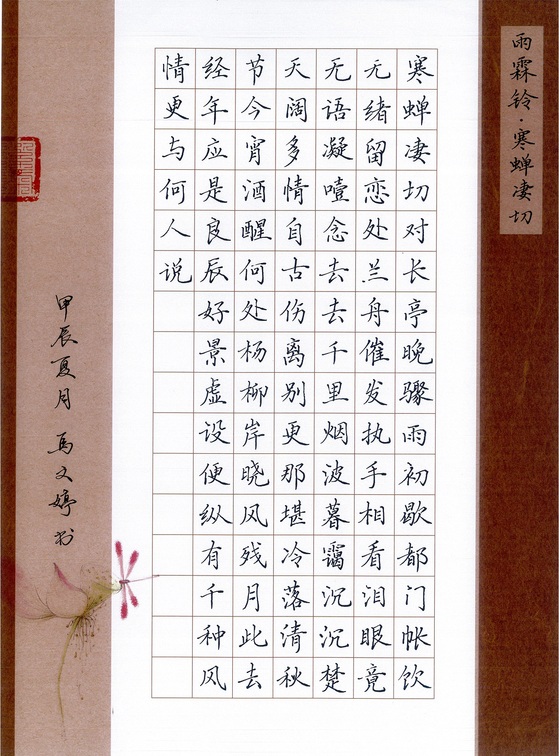 雨霖铃·寒蝉凄切
寒蝉凄切对长亭晚骤雨初歇都门帐饮
无绪留恋处兰舟催发执手相看泪眼竟
无语凝噎念去去千里烟波暮霭沉沉楚
天阔多情自古伤离别更那堪冷落清秋
节今宵酒醒何处杨柳岸晓风残月此去
经年应是良辰好景虚设便纵有千种风
情更与何人说
甲辰夏月 马文婷书